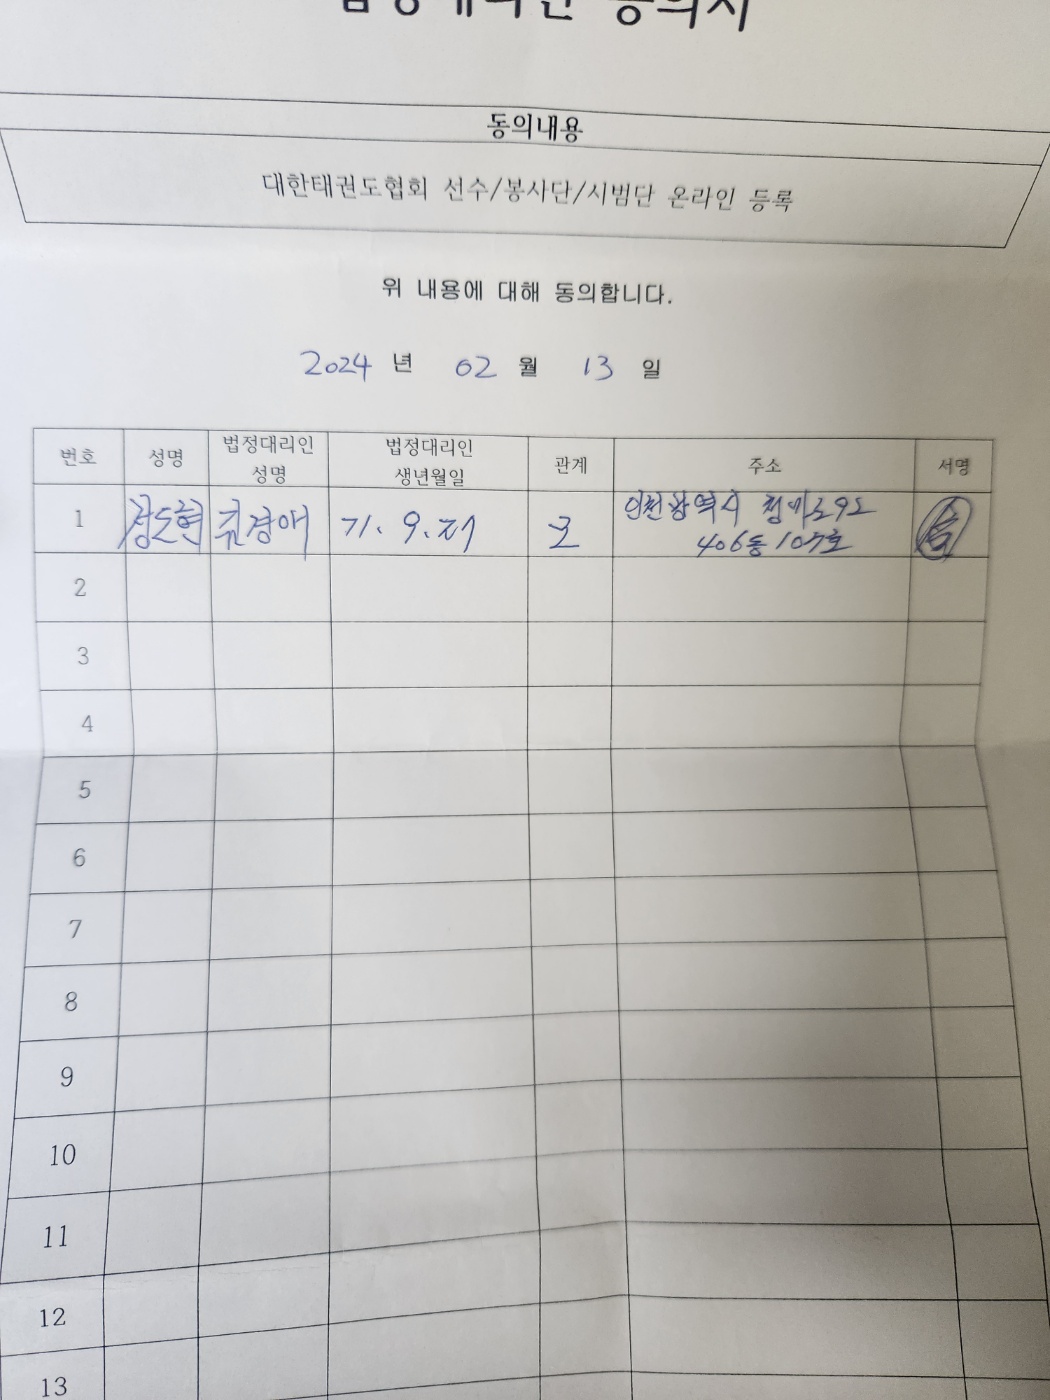 법정대리인 동의서
동의내용
대한태권도협회 선수/봉사단/시범단 온라인 등록
위 내용에 대해 동의합니다.
2024 년 02 월 13 일
번호 성명 법정대리인 성명 법정대리인 생년월일 관계 주소 서명
1 경애 71. 9. 모 인천광역시
406동 107호
2
3
4
5
6
7
8
9
10
11
12
13